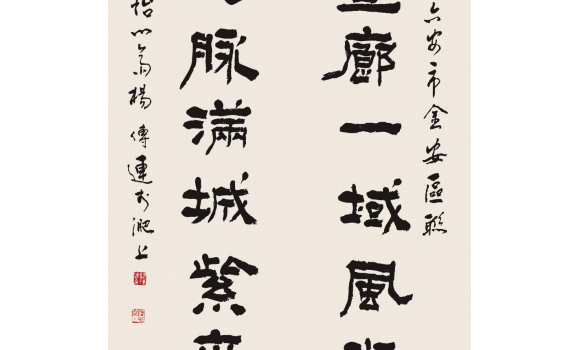 六安市金安區聯
廊一域風
脈滿城紫
心齋楊傳連於淝上